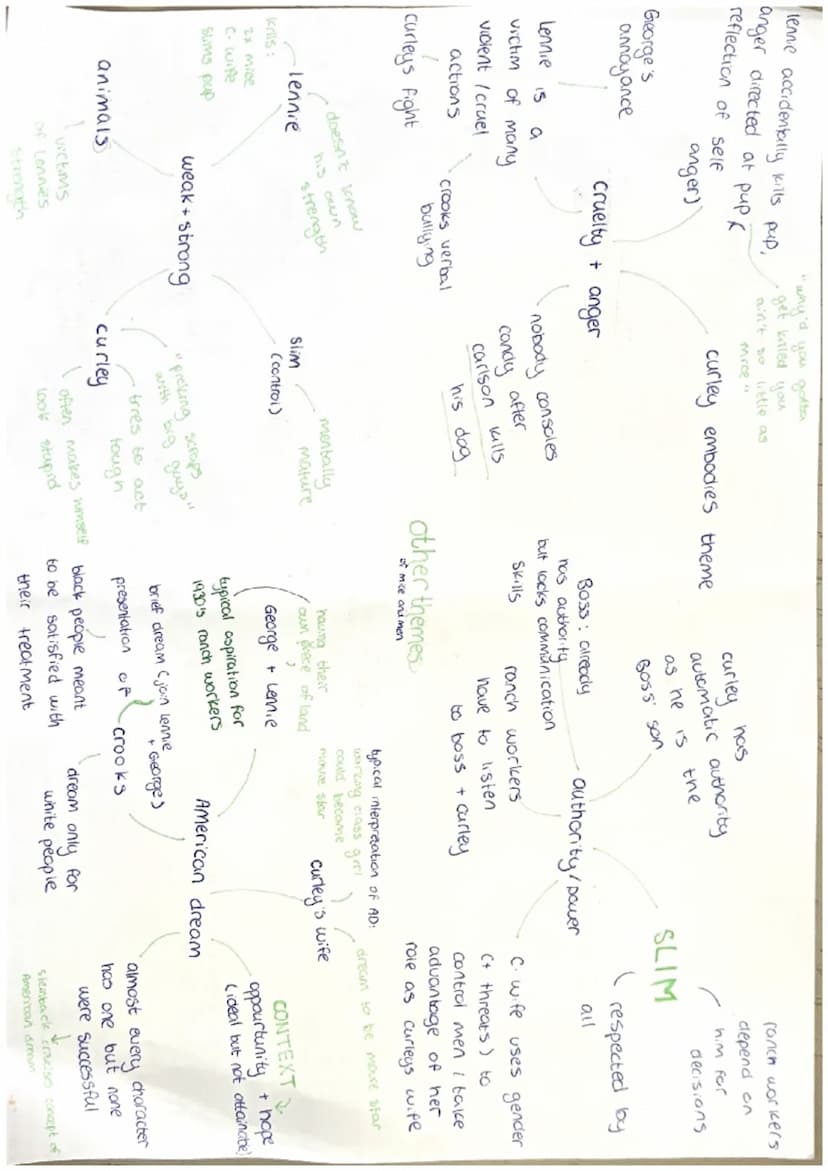 other themes
of mice and men
cruelty + anger
George's
annoyance
lennie accidentally kills pup,
anger directed at pup (
reflection of self
anger)
"why'd you gotta
get killed you
ain't so little as
mice"
curley embodies theme
nobody consoles
candy after
carlson kills
his dog
Lennie is a
victim of many
violent / cruel
actions
curleys fight
crooks verbal
bullying
weak + strong
lennie
kills:
2x mice
c. wife
slims pup
doesn't know
his own
strength
slim
(control)
mentally
mature
curley
"picking scraps
with big guys"
tries to act
tough
often makes himself
look stupid
animals
victims
of lennies
strength
authority/power
Boss: already
has authority
but lacks communication
skills
curley has
automatic authority
as he is the
Boss' son
SLIM
ranch workers
depend on
him for
decisions
respected by
all
c. wife uses gender
(+ threats) to
control men / take
advantage of her
role as curleys wife
ranch workers
have to listen
to boss + curley
American dream
George + Lennie
having their
own piece of land
typical aspiration for
1930's ranch workers
curley's wife
typical interpretation of AD:
working class girl
could become
movie star
dream to be movie star
CONTEXT
oppurtunity + hope
(ideal but not attainable)
almost every character
has one but none
were successful
steinbeck
concept of
American dream
crooks
brief dream (join lennie
+ George)
presentation of
black people meant
to be satisfied with
their treatment
dream only for
white people